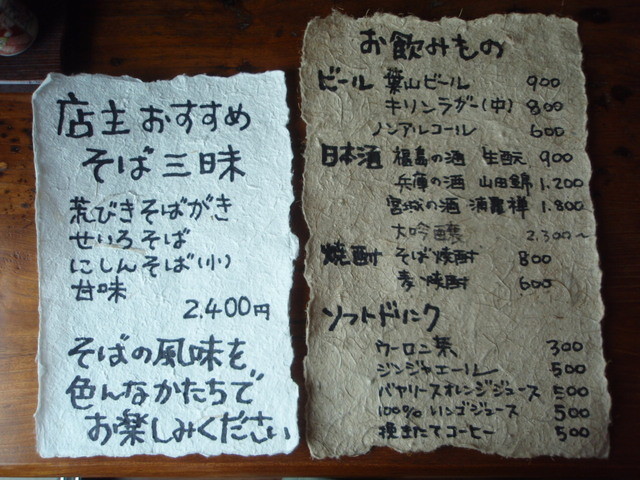 店主おすすめ
そば三昧
荒びきそばがき
せいろそば
にしんそば(小)
甘味
2.400円
そばの風味を
色んなかたちで
お楽しみください
お飲みもの
ビール 葉山ビール 900
キリンラガー(中) 800
ノンアルコール 600
日本酒 福島の酒 生酛 900
兵庫の酒 山田錦 1.200
宮城の酒 浦霞禅 1.800
大吟醸 2.300〜
焼酎 そば焼酎 800
麦焼酎 600
ソフトドリンク
ウーロン茶 300
ジンジャエール 500
バヤリースオレンジジュース 500
100% リンゴジュース 500
挽きたてコーヒー 500